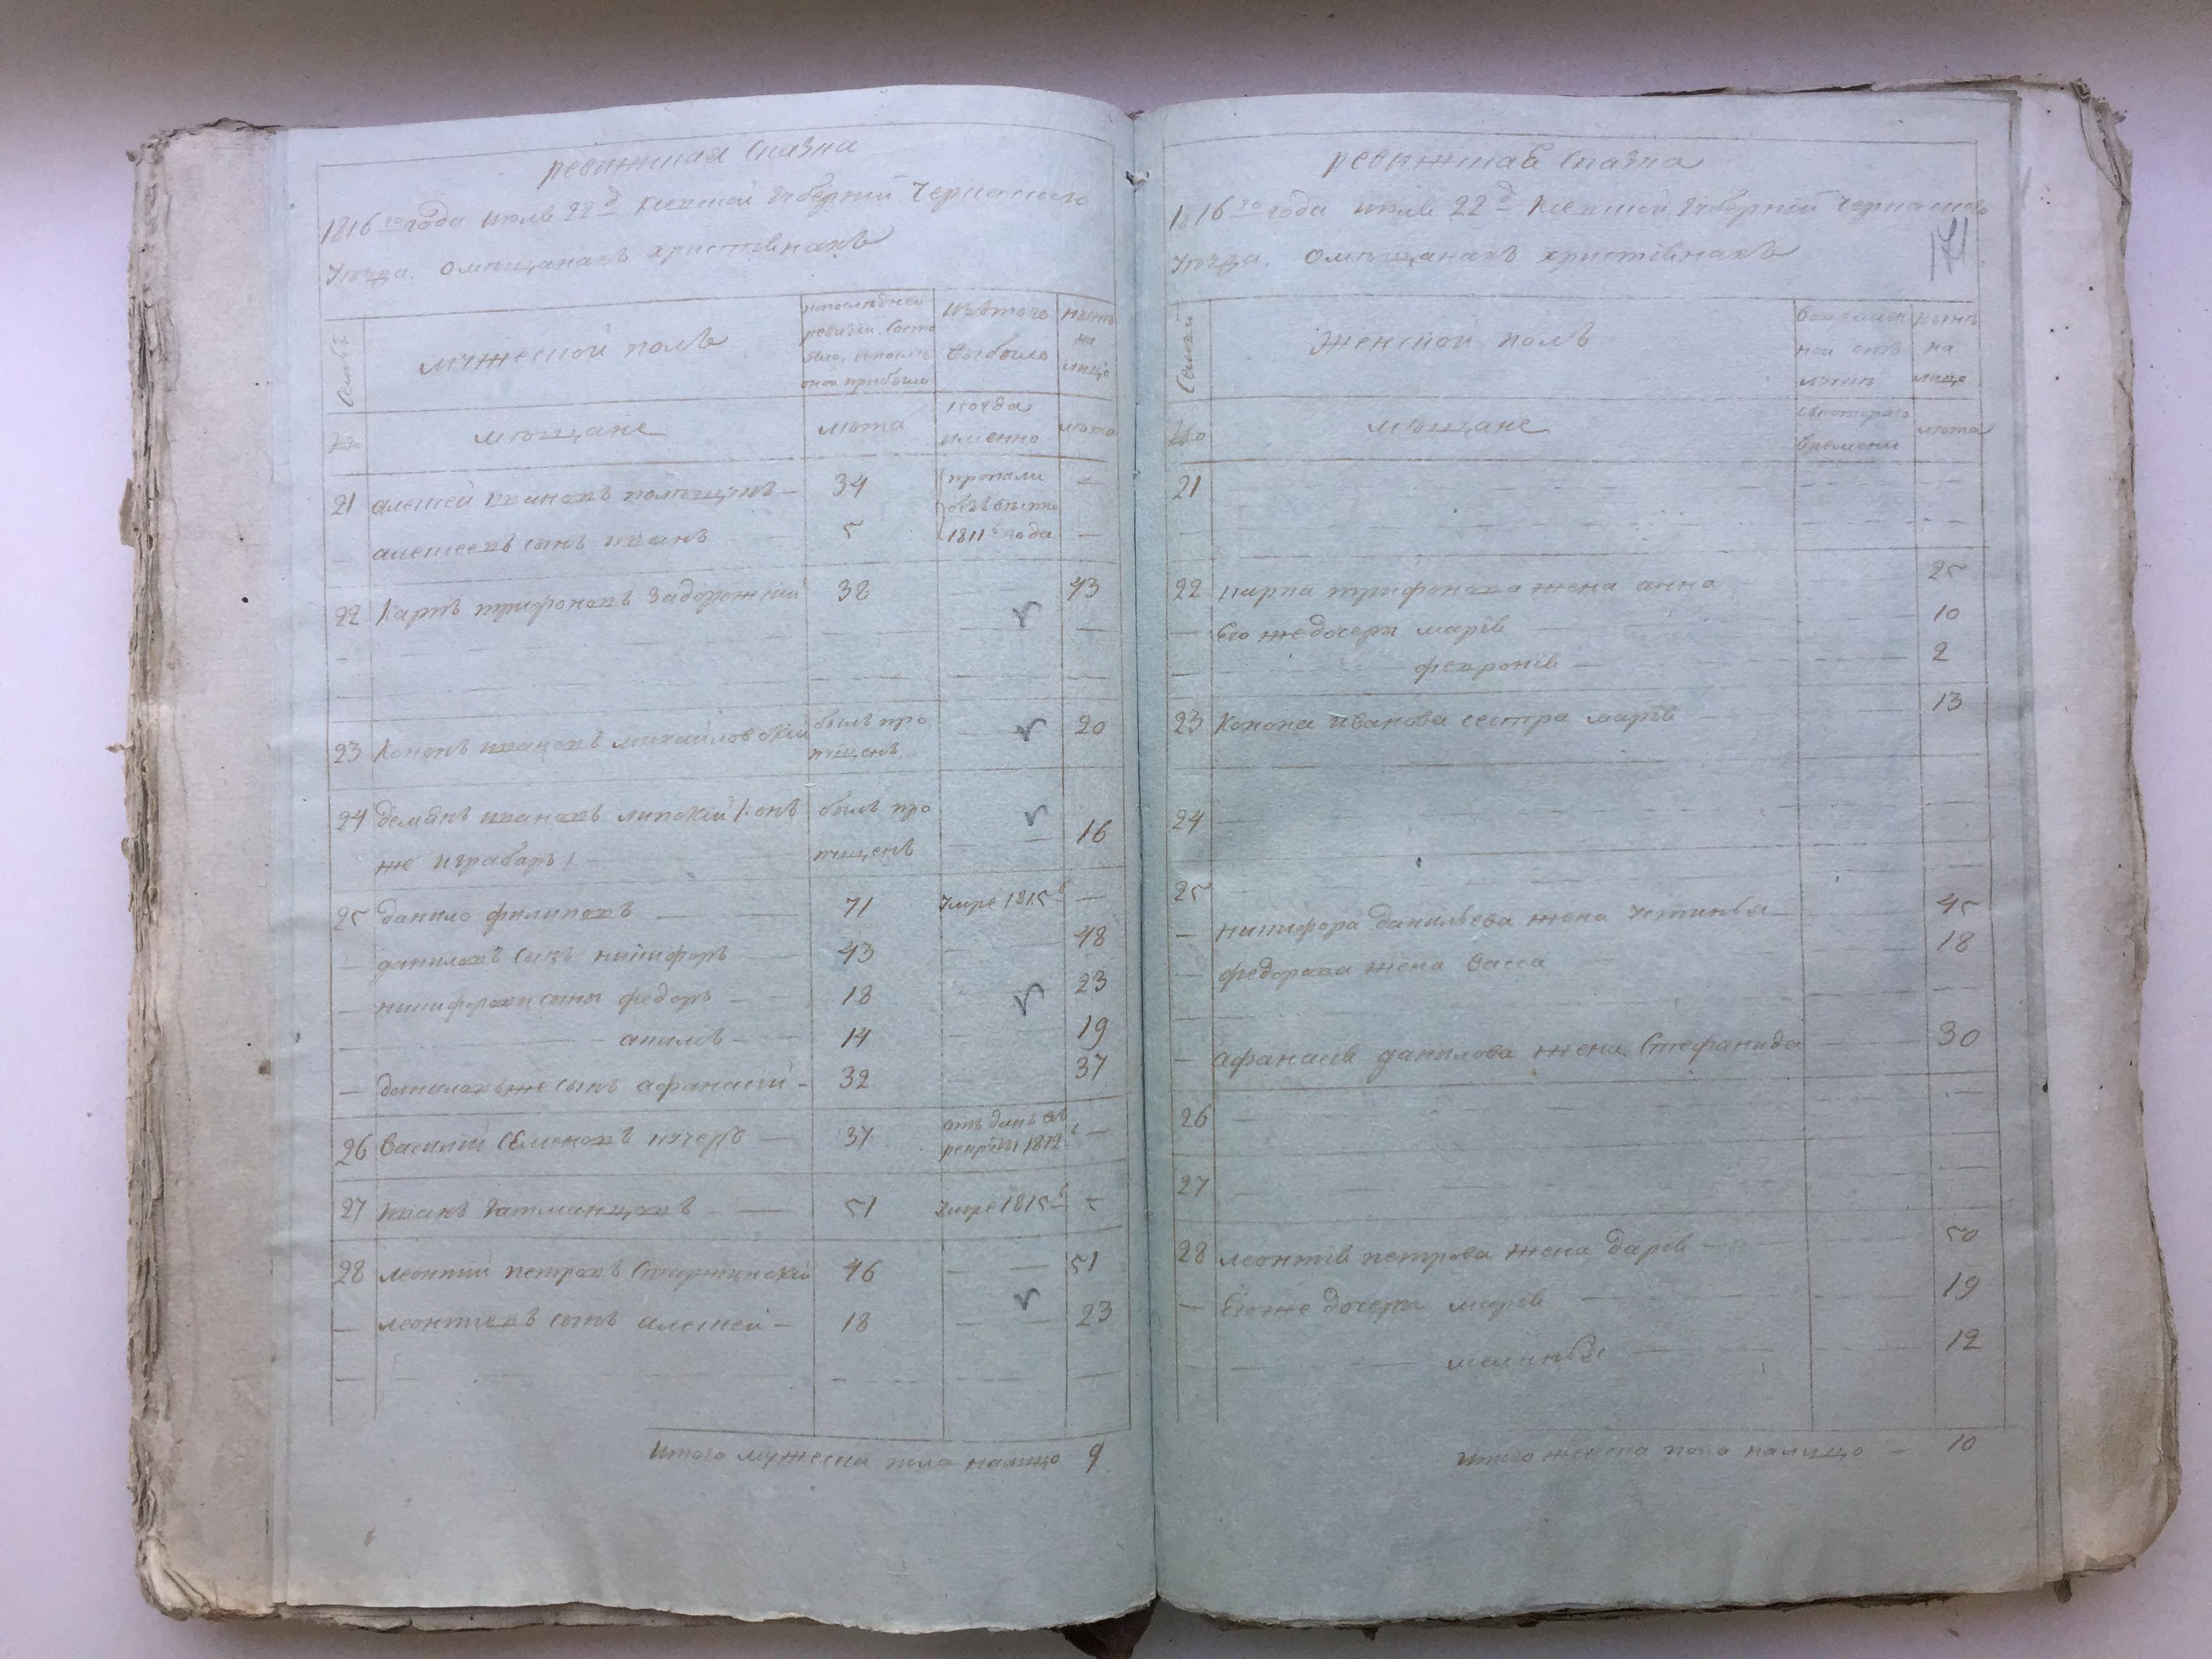 ревижская сказка
1816го года июля 22д Киевской губернии Черкаского
уезда. О мѣщанахъ христіянахъ
Семьи
мужеской полъ
и послѣдней ревизіи состояло, и после оной прибыло
изъ того выбыло
нынѣ на лицо
№
мѣщане
лѣта
когда именно
лѣта
21 алексей ивановъ — 34 пропали —
алексеевъ сынъ иванъ 5 1811го года —
22 Карпъ трифоновъ Задорожній 38 — 43
23 Кононъ ивановъ михайловскій былъ пропущенъ — 20
24 демянъ ивановъ липскій /: онъ былъ про
же играборъ / пущенъ — 16
25 данило филиповъ — 71 умре 1815 —
даниловъ сынъ никифоръ — 43 — 48
никифоровы сыны федоръ — 18 — 23
акимъ — 14 — 19
— даниловъ же сынъ афанасий — 32 37
26 василий Семеновъ кучеръ — 37 отъданъ въ рекруты 1812 —
27 иванъ гатманцовъ — 51 умре 1815 —
28 леонтий петровъ 46 — 51
— леонтиевъ сынъ алексей — 18 — 23
итого мужеска пола налицо 9
ревижская сказка
1816го года июля 22д Киевской губернии Черкаского
уезда. О мѣщанахъ христіянахъ
Семьи
Женской полъ
во временной отлучкѣ
нынѣ на лицо
№
мѣщане
съ котораго времени
лѣта
21
22 карпа трифонова жена анна 25
— Его же дочери марія 10
февронія — 2
23 Конона иванова сестра марія 13
24
25
— никифора данильева жена устинья — 45
— федорова жена васса 18
— афанасія данилова жена Стефанида 30
26
27
28 леонтія петрова жена дарія 50
— Его же дочери марія 19
меланья 12
итого женска пола налицо — 10